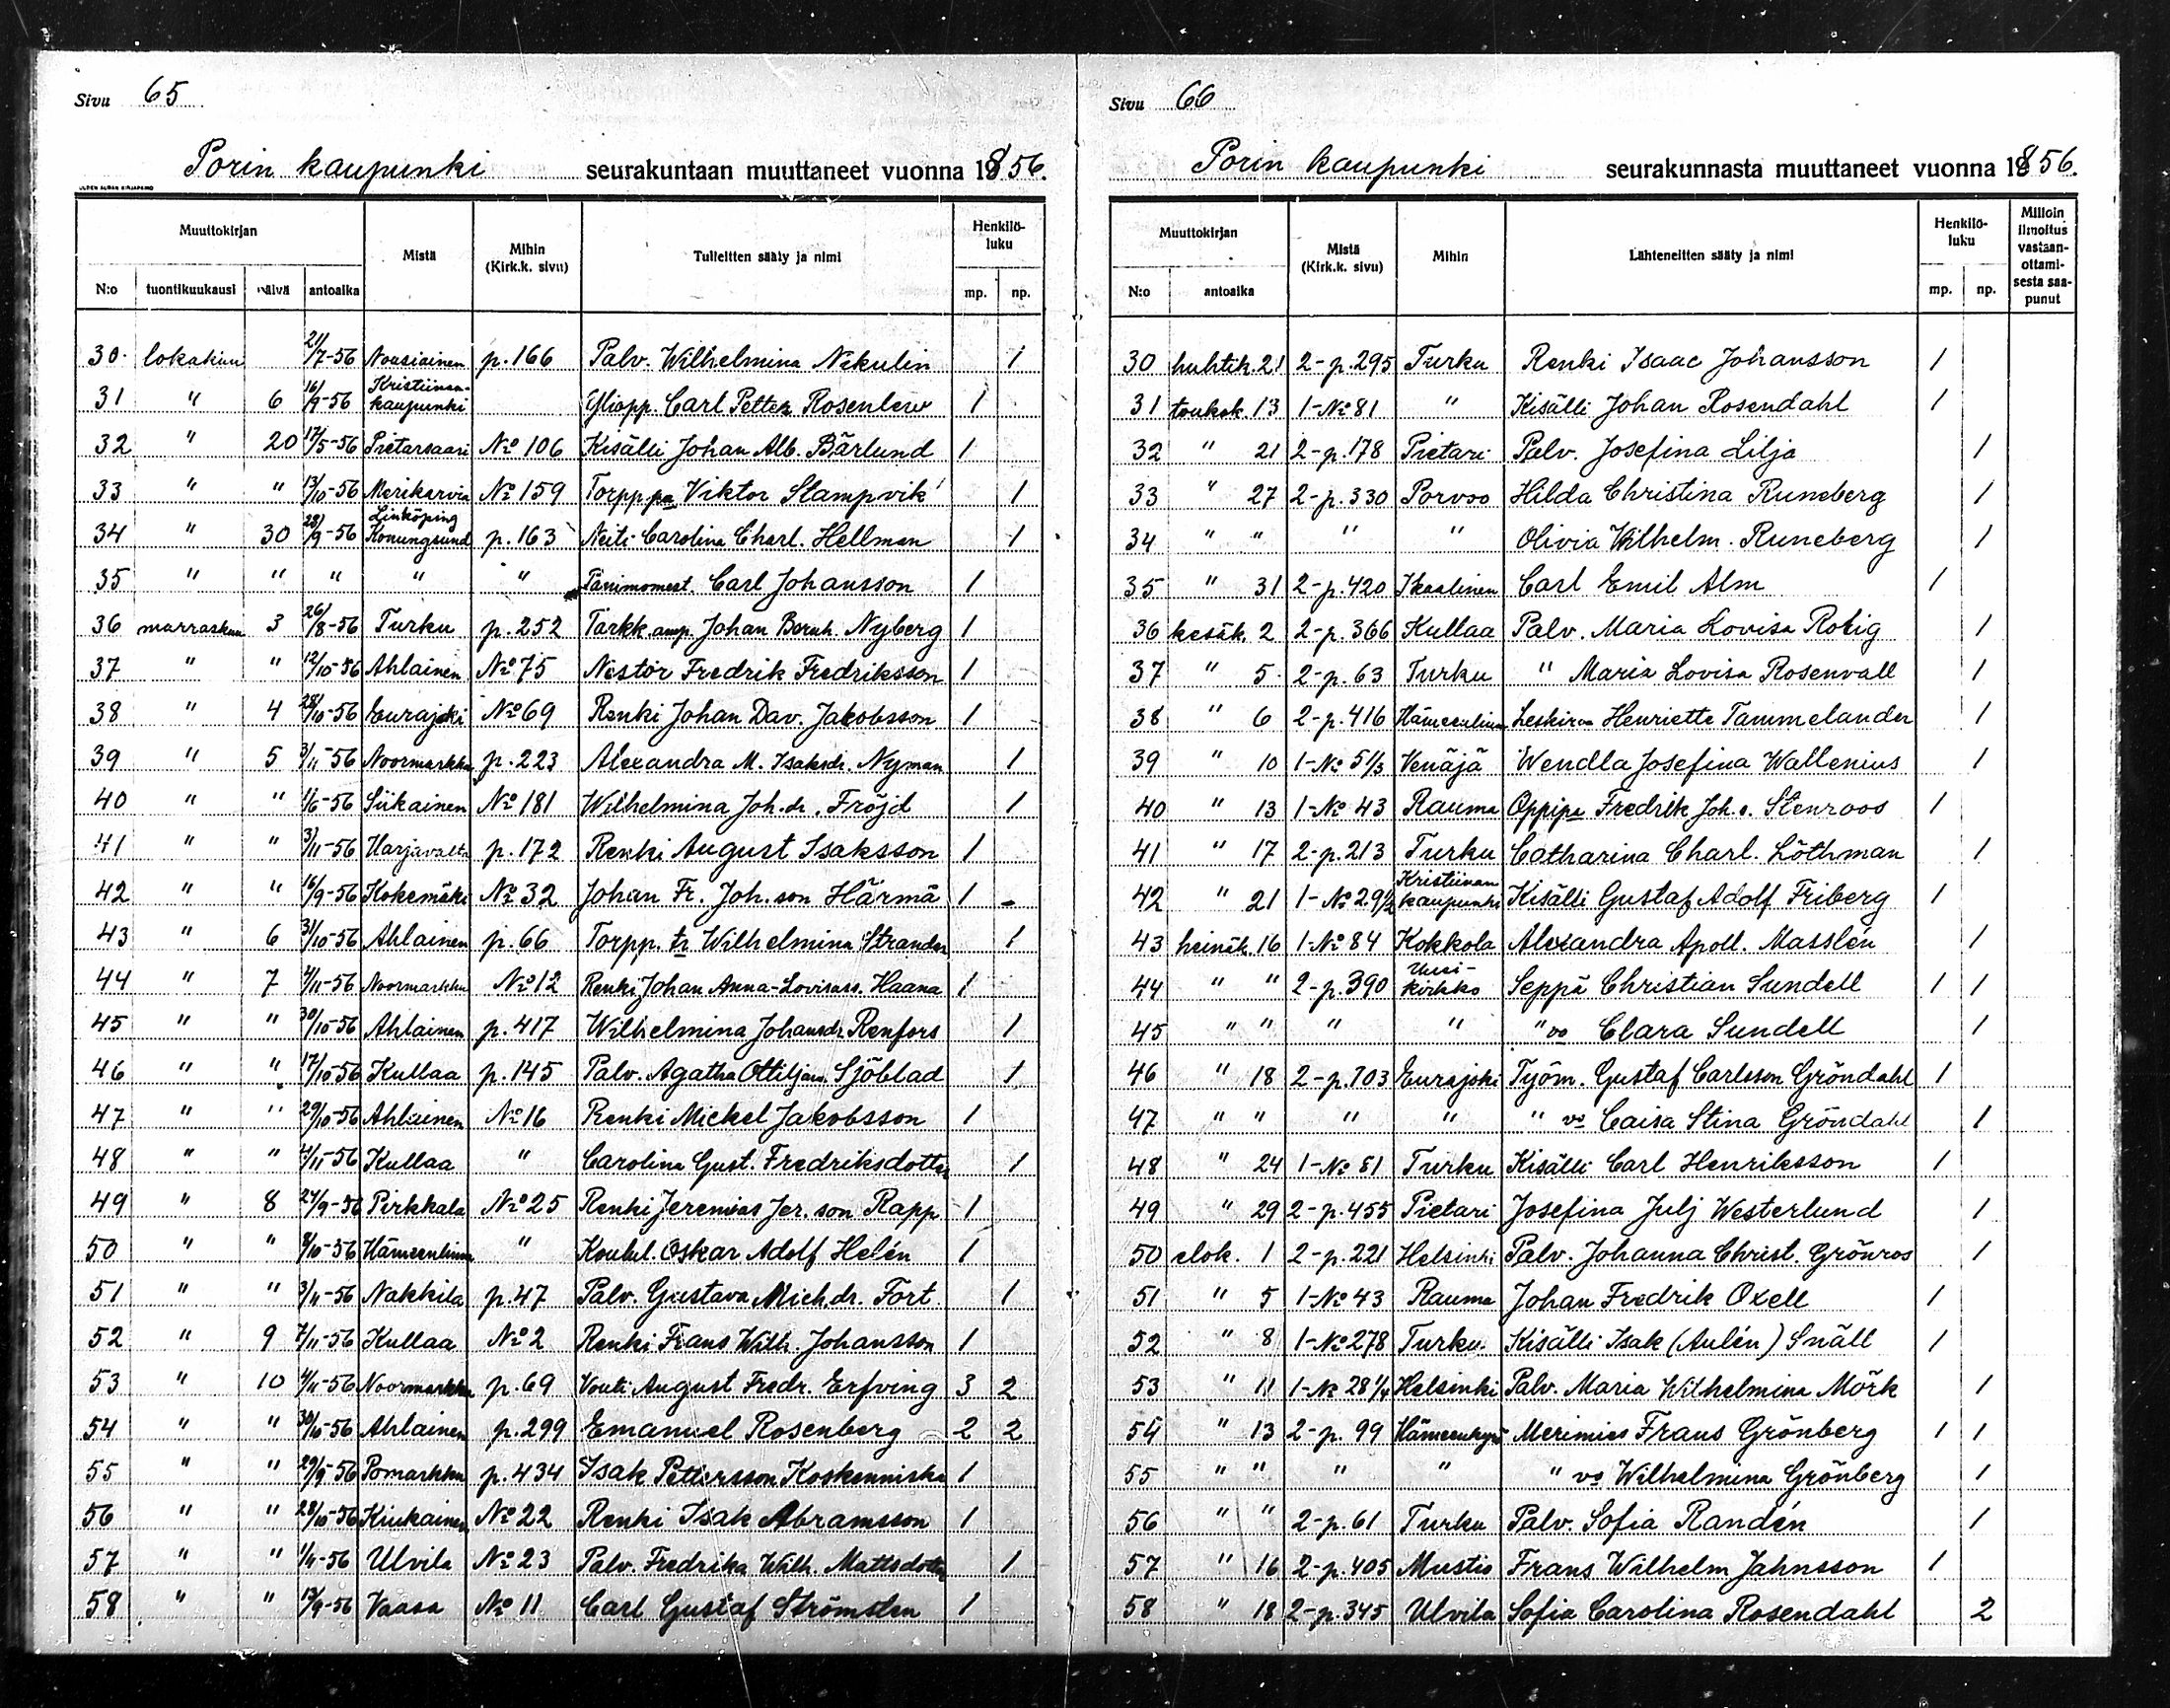 Sivu 65
Porin kaupunki seurakuntaan muuttaneet vuonna 1856.
UUDEN AURAN KIRJAPAINO
Muuttokirjan Mistä Mihin (Kirk.k. sivu) Tulleitten sääty ja nimi Henkilö-luku
N:o tuontikuukausi päivä antoaika mp. np.
30 lokakuu 21/7-56 Nousiainen p. 166 Palv. Wilhelmina Nikulin 1
31 " 6 16/9-56 Kristiinan-kaupunki Yliopp. Carl Petter Rosenlew 1
32 " 20 17/5-56 Pietarsaari No 106 Kisälli Johan Alb. Bärlund 1
33 " " 13/10-56 Merikarvia No 159 Torpp.pa Viktor Stampvik 1
34 " 30 28/9-56 Linköping Konungsund p. 163 Neiti Carolina Charl. Hellman 1
35 " " " " " Carl Johansson 1
36 marraskuu 3 26/8-56 Turku p. 252 Tarkk.amp. Johan Bernh. Nyberg 1
37 " " 12/10-56 Ahlainen No 75 Nestor Fredrik Fredriksson 1
38 " 4 28/10-56 Eurajoki No 69 Renki Johan Dav. Jakobsson 1
39 " 5 3/11-56 Noormarkku p. 223 Alexandra M. Isaksdr. Nyman 1
40 " " 1/6-56 Siikainen No 181 Wilhelmina Joh.dr. Fröjd 1
41 " " 3/11-56 Harjavalta p. 172 Renki August Isaksson 1
42 " " 16/9-56 Kokemäki No 32 Johan Fr. Joh.son Härmä 1 -
43 " 6 31/10-56 Ahlainen p. 66 Torpp. tr Wilhelmina Strander 1
44 " 7 4/11-56 Noormarkku No 12 Renki Johan Anna-Lovisass. Haana 1
45 " " 30/10-56 Ahlainen p. 417 Wilhelmina Johansdr. Renfors 1
46 " " 17/10-56 Kullaa p. 145 Palv. Agatha Sjöblad 1
47 " " 29/10-56 Ahlainen No 16 Renki Mickel Jakobsson 1
48 " " 4/11-56 Kullaa " Carolina Gust. Fredriksdotter 1
49 " 8 24/9-56 Pirkkala No 25 Renki Jeremias Jer.son Rapp 1
50 " " 8/10-56 Hämeenlinna " Koulul. Oskar Adolf Helén 1
51 " " 3/11-56 Nakkila p. 47 Palv. Gustava Mich.dr. Fort 1
52 " 9 7/11-56 Kullaa No 2 Renki Frans Wilh. Johansson 1
53 " 10 4/11-56 Noormarkku p. 69 Vouti August Fredr. Erfving 3 2
54 " " 30/10-56 Ahlainen p. 299 Emanuel Rosenberg 2 2
55 " " 29/9-56 Pomarkku p. 434 Isak Pettersson Koskenniska 1
56 " " 28/10-56 Kiukainen No 22 Renki Isak Abramsson 1
57 " " 1/11-56 Ulvila No 23 Palv. Fredrika Wilh. Mattsdotter 1
58 " " 13/9-56 Vaasa No 11 Carl Gustaf Strömsten 1
Sivu 66
Porin kaupunki seurakunnasta muuttaneet vuonna 1856.
Muuttokirjan Mistä (Kirk.k. sivu) Mihin Lähteneitten sääty ja nimi Henkilö-luku Milloin ilmoitus vastaan-ottami-sesta saa-punut
N:o antoaika mp. np.
30 huhtik. 21 2-p. 295 Turku Renki Isaac Johansson 1
31 toukok. 13 1-No 81 " Kisälli Johan Rosendahl 1
32 " 21 2-p. 178 Pietari Palv. Josefina Lilja 1
33 " 27 2-p. 330 Porvoo Hilda Christina Runeberg 1
34 " " " " Olivia Wilhelm. Runeberg 1
35 " 31 2-p. 420 Ikaalinen Carl Emil Alm 1
36 kesäk. 2 2-p. 366 Kullaa Palv. Maria Lovisa Rotig 1
37 " 5 2-p. 63 Turku " Maria Lovisa Rosenvall 1
38 " 6 2-p. 416 Hämeenlinna Leskirva Henriette Tammelander 1
39 " 10 1-No 51/3 Venäjä Wendla Josefina Wallenius 1
40 " 13 1-No 43 Rauma Oppipa Fredrik Joh.s. Stenroos 1
41 " 17 2-p. 213 Turku Catharina Charl. Löthman 1
42 " 21 1-No 29 1/2 Kristiinan kaupunki Kisälli Gustaf Adolf Friberg 1
43 heinäk. 16 1-No 84 Kokkola Alexandra Apoll. Masslén 1
44 " " 2-p. 390 Uusi-kirkko Seppä Christian Sundell 1 1
45 " " " " " vo Clara Sundell 1
46 " 18 2-p. 703 Eurajoki Työm. Gustaf Carlsson Gröndahl 1
47 " " " " " vo Caisa Stina Gröndahl 1
48 " 24 1-No 81 Turku Kisälli Carl Henriksson 1
49 " 29 2-p. 455 Pietari Josefina Julj Westerlund 1
50 elok. 1 2-p. 221 Helsinki Palv. Johanna Christ. Grönros 1
51 " 5 1-No 43 Rauma Johan Fredrik Oxell 1
52 " 8 1-No 278 Turku Kisälli Isak (Aulén) Snäll 1
53 " 11 1-No 28 1/4 Helsinki Palv. Maria Wilhelmina Mörk 1
54 " 13 2-p. 99 Hämeenkyrö Merimies Frans Grönberg 1 1
55 " " " " " vo Wilhelmina Grönberg 1
56 " " 2-p. 61 Turku Palv. Sofia Randén 1
57 " 16 2-p. 405 Mustio Frans Wilhelm Jahnsson 1
58 " 18 2-p. 345 Ulvila Sofia Carolina Rosendahl 2